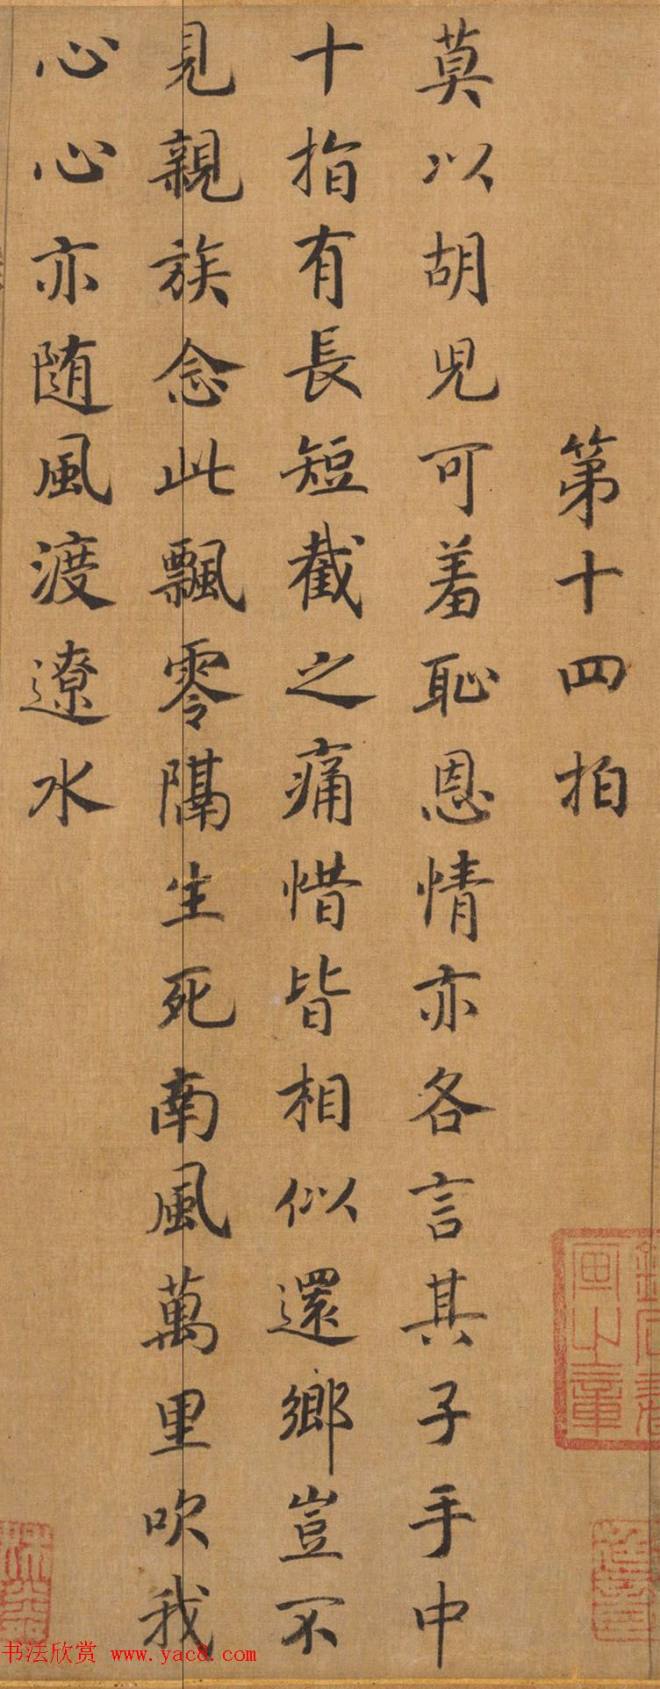 第十四拍
莫以胡兒可羞恥恩情亦各言其子手中
十指有長短截之痛惜皆相似還鄉豈不
見親族念此飄零隔生死南風萬里吹我
心心亦随風渡遼水
书法欣赏 www.yac8.com